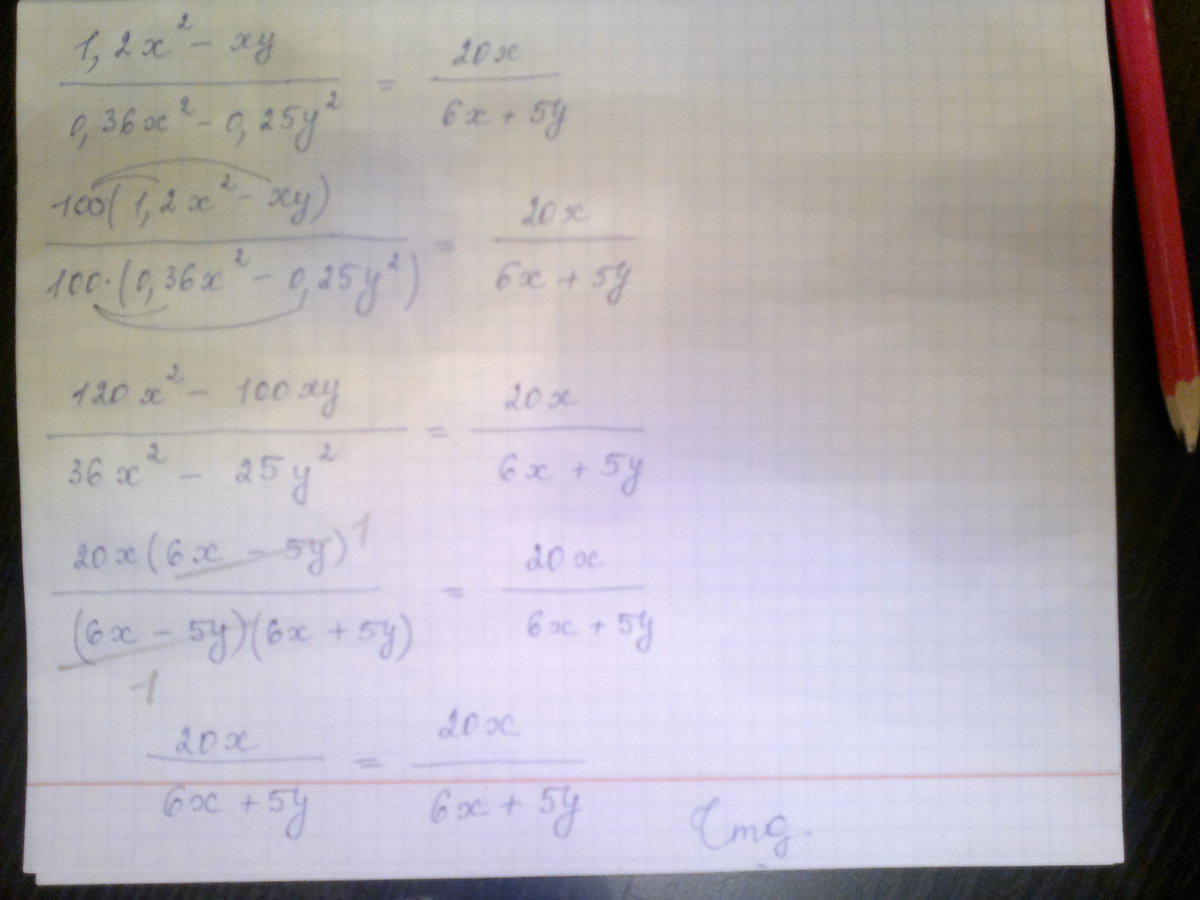 1,2x² - xy / 0,36x² - 0,25y² = 20x / 6x + 5y
100(1,2x² - xy) / 100·(0,36x² - 0,25y²) = 20x / 6x + 5y
120x² - 100xy / 36x² - 25y² = 20x / 6x + 5y
20x(6x - 5y) 1 / (6x - 5y)(6x + 5y) 1 = 20x / 6x + 5y
20x / 6x + 5y = 20x / 6x + 5y
Чтд.